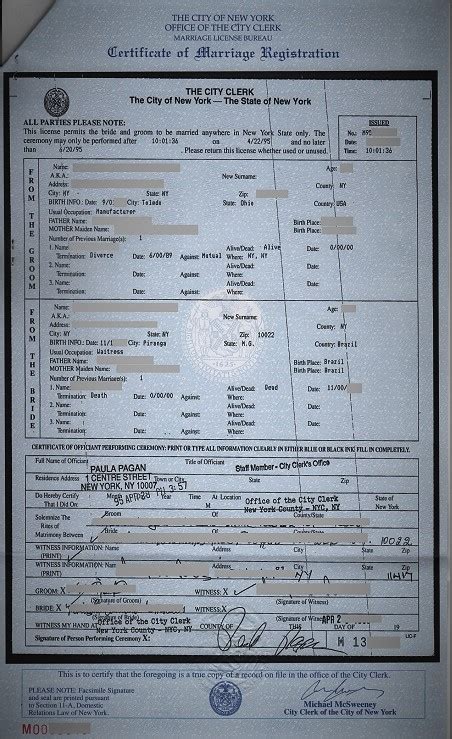 THE CITY OF NEW YORK
OFFICE OF THE CITY CLERK
MARRIAGE LICENSE BUREAU
Certificate of Marriage Registration
THE CITY CLERK
The City of New York — The State of New York
ALL PARTIES PLEASE NOTE:
This license permits the bride and groom to be married anywhere in New York State only. The
ceremony may only be performed after 10:01:36 on 4/22/95 and no later
than 6/20/95 . Please return this license whether used or unused.
ISSUED
No.:
Date:
Time: 10:01:36
FROM THE GROOM
Name: Age:
A.K.A.: New Surname:
Address:
City: NY - State: NY Zip: County: NY
BIRTH INFO: Date: 9/0 City: Toledo State: Ohio Country: USA
Usual Occupation: Manufacturer
FATHER Name: Birth Place:
MOTHER Maiden Name: Birth Place:
Number of Previous Marriage(s): 1
1. Name: Alive/Dead: Alive Date: 0/00/00
Termination: Divorce Date: 6/00/89 Against: Mutual Where: NY, NY
2. Name: Alive/Dead: Date:
Termination: Date: Against: Where:
3. Name: Alive/Dead: Date:
Termination: Date: Against: Where:
FROM THE BRIDE
Name: Age:
A.K.A.: New Surname:
Address:
City: NY State: NY Zip: 10022 County: NY
BIRTH INFO: Date: 11/1 City: Piranga State: M.G. Country: Brazil
Usual Occupation: Waitress
FATHER Name: Birth Place: Brazil
MOTHER Maiden Name: Birth Place: Brazil
Number of Previous Marriage(s): 1
1. Name: Alive/Dead: Dead Date: 11/00/
Termination: Death Date: 0/00/00 Against: Where:
2. Name: Alive/Dead: Date:
Termination: Date: Against: Where:
3. Name: Alive/Dead: Date:
Termination: Date: Against: Where:
CERTIFICATE OF OFFICIANT PERFORMING CEREMONY: PRINT OR TYPE ALL INFORMATION CLEARLY IN EITHER BLUE OR BLACK INK FILL IN COMPLETELY.
Full Name of Officiant PAULA PAGAN Title of Officiant Staff Member - City Clerk's Office
Residence Address 1 CENTRE STREET Town or City State Zip
NEW YORK, NY 10007
Do Hereby Certify Month Year Time At Location State of
That I Did On: M Office of the City Clerk New York
New York County - NYC, NY
Solemnize The Groom Of County/State
Rites of
Matrimony Between Bride Of County/State 10022
WITNESS INFORMATION: Name Address City State Zip
(PRINT)
WITNESS INFORMATION: Name Address City State Zip
(PRINT) NY
GROOM: X WITNESS: X
(Signature of Groom) (Signature of Witness)
BRIDE: X WITNESS: X
(Signature of Bride) (Signature of Witness)
WITNESS MY HAND AT Office of the City Clerk COUNTY OF THIS APR 2 DAY OF 19
New York County - NYC, NY
Signature of Person Performing Ceremony X: M 13
This is to certify that the foregoing is a true copy of a record on file in the office of the City Clerk.
PLEASE NOTE: Facsimile Signature
and seal are printed pursuant
to Section 11-A, Domestic
Relations Law of New York.
Michael McSweeney
City Clerk of the City of New York
M00